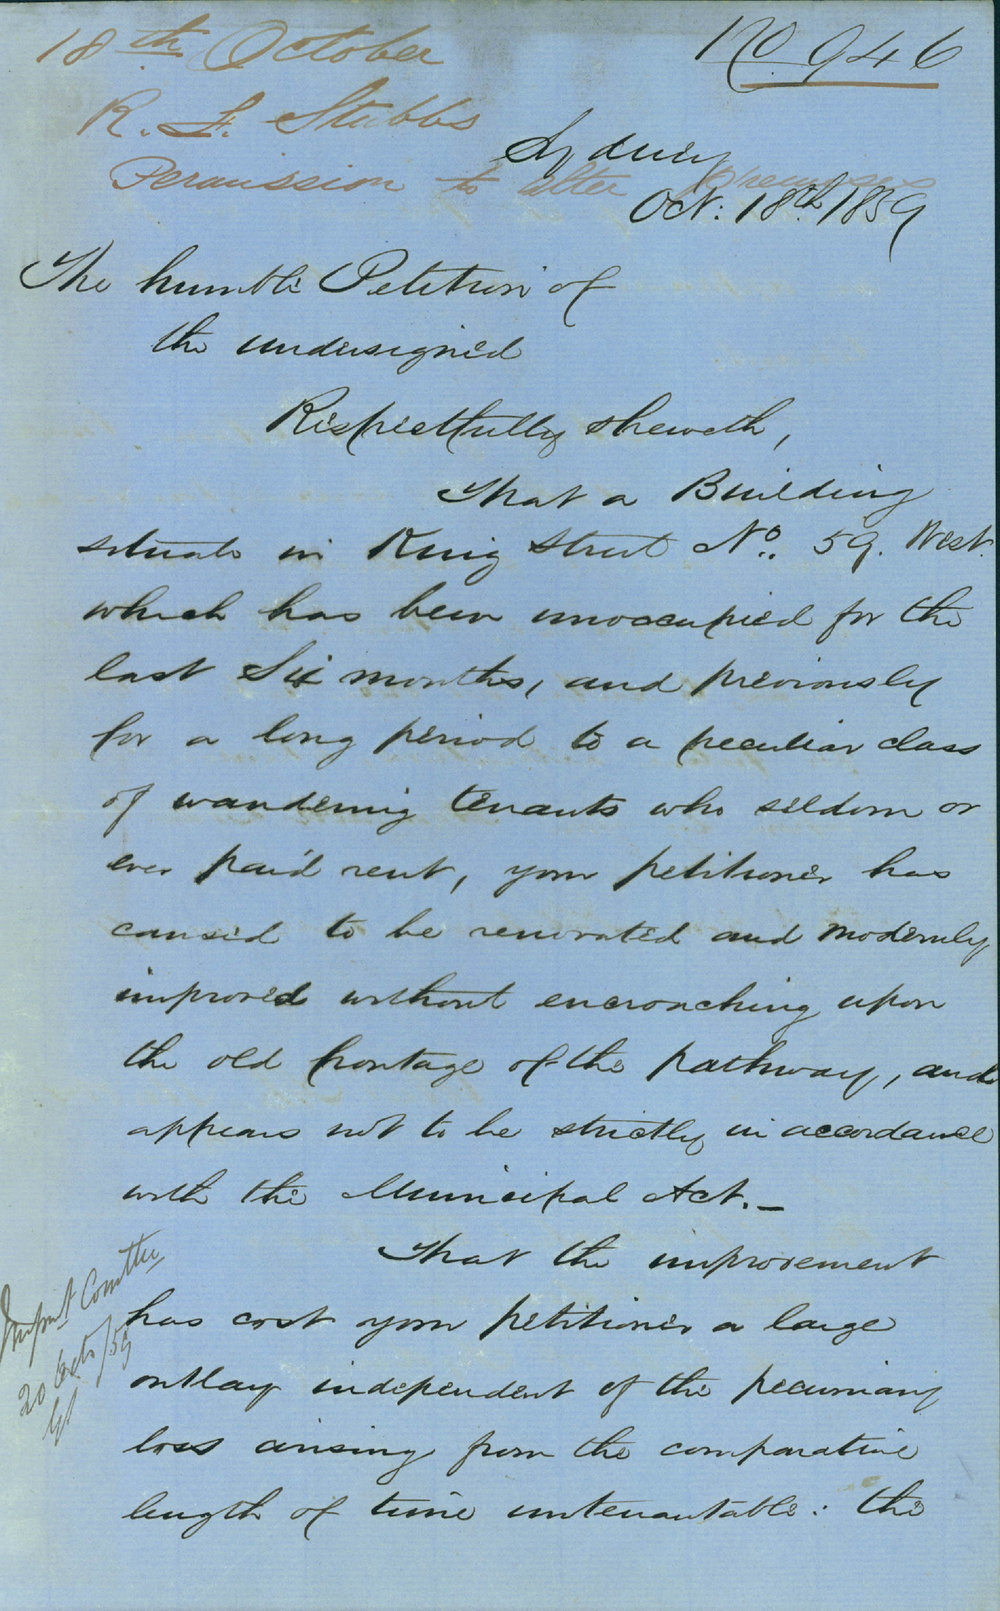 18th October
No 946
R. F. Stubbs
Permission to alter premises
Sydney
Oct: 18th 1859
The humble Petition of
the undersigned
Respectfully sheweth,
That a Building
situate in King Street No. 59. West.
which has been unoccupied for the
last Six months, and previously
for a long period to a peculiar class
of wandering tenants who seldom or
ever paid rent, your petitioner has
caused to be renovated and modernly
improved without encroaching upon
the old frontage of the pathway, and
appears not to be strictly in accordance
with the Municipal Act. —
That the improvement
has cost your petitioner a large
outlay independent of the pecuniary
loss arising from the comparative
length of time untenantable: the
Improt Comttee
20 Octo/59